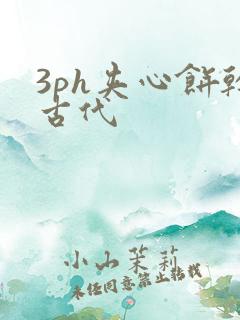 3ph夹心餅幹
古代
小山茉莉
未经同意禁止转载